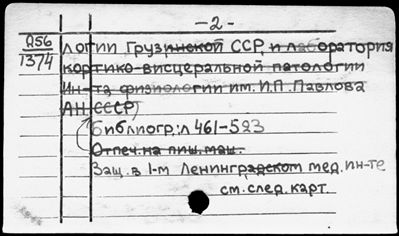 -2-
Д56
1374
логии Грузинской ССР и лаборатория
кортико-висцеральной патологии
Ин-та физиологии им. И.П. Павлова
АН СССР)
Библиогр: л 461-523
Отпеч. на пиш. маш.
Защ. в 1-м Ленинградском мед. ин-те
см. след. карт.